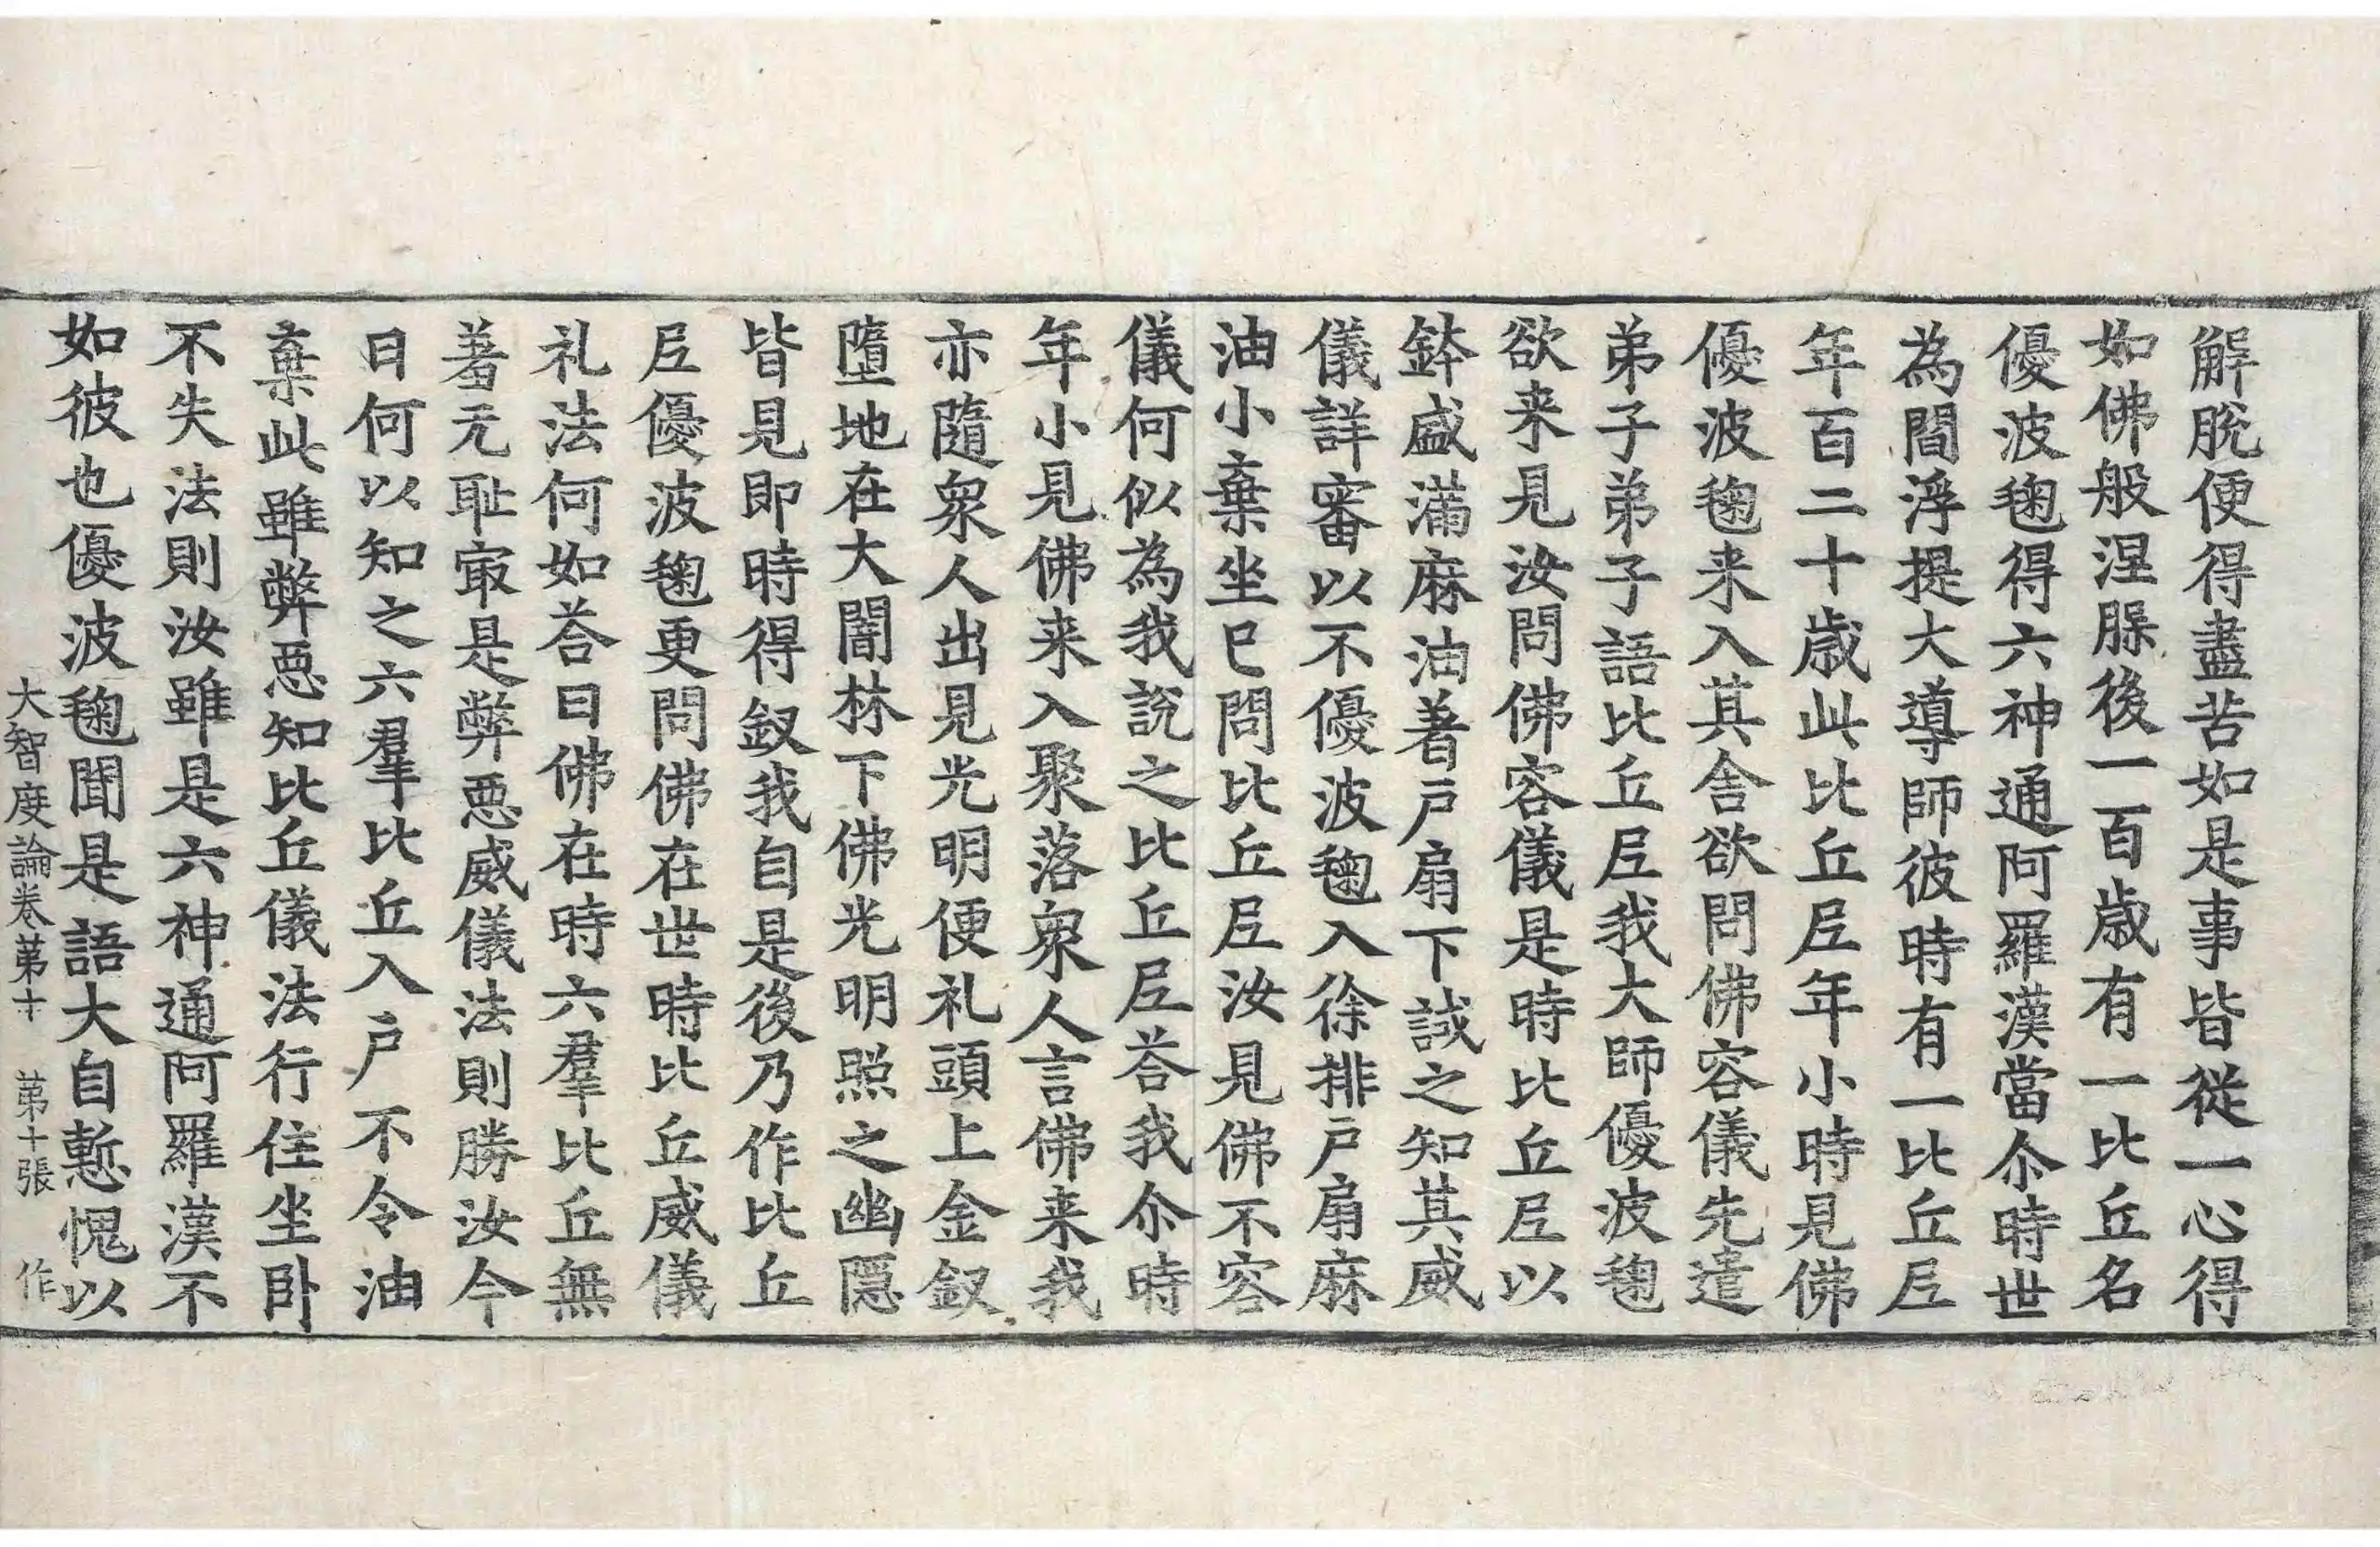 解脫便得盡苦如是事皆從一心得
如佛般涅脵後一百歲有一比丘名
優波毱得六神通阿羅漢當尒時世
為閻浮提大導師彼時有一比丘𡰱
年百二十歲此比丘𡰱年小時見佛
優波毱来入其舍欲問佛容儀先遣
弟子弟子語比丘𡰱我大師優波毱
欲来見汝問佛容儀是時比丘𡰱以
鉢盛滿麻油著戶扇下試之知其威
儀詳審以不優波毱入徐排戶扇麻
油小棄坐已問比丘𡰱汝見佛不容
儀何似為我說之比丘𡰱荅我尒時
年小見佛来入聚落衆人言佛来我
亦隨衆人出見光明便礼頭上金釵
墮地在大闇林下佛光明照之幽隱
皆見即時得釵我自是後乃作比丘
𡰱優波毱更問佛在世時比丘威儀
礼法何如荅曰佛在時六羣比丘無
著无耻㝡是弊惡威儀法則勝汝今
日何以知之六羣比丘入戶不令油
棄此雖弊惡知比丘儀法行住坐卧
不失法則汝雖是六神通阿羅漢不
如彼也優波毱聞是語大自慙愧以
大智度論卷第十 第十張 作